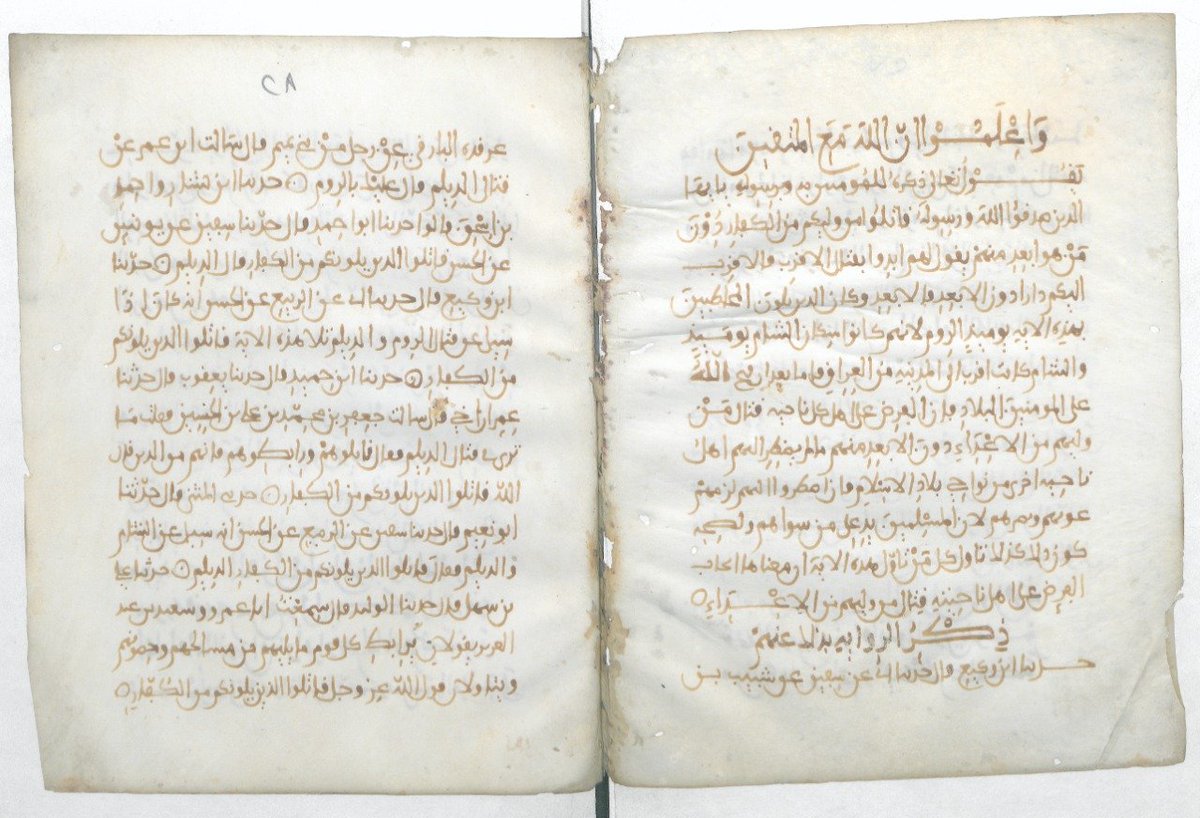 وَاعْلَمُوا انّ اللهَ مَعَ المتقينَ
يقُول تعالى ذكره للمومنين به وبرسوله يا ايها
الذين صدقوا اللهَ ورسولهُ قاتلوا من وليكم من الكفار دُوْنَ
مَنْ هو ابعد منهم يقول لهم ابدوا بقتال الاقرب فالاقرب
اليكم دارا دون الابعد فالابعد وكان الذين يلونَ المخاطبينَ
بهذه الاية يوميذٍ الروم لانهم كانوا سكان الشام يوميذٍ
والشام كانت اقرب الى المدينة من العراق فاما بعد ان فتح اللهُ
على المومنين البلاد فان الفرض على اهل كل ناحية قتال مَنْ
وليهم من الاعْداءِ دون الابعد منهم ما لم يضطر اليهم اهل
ناحية اخرى من نواحي بلاد الاسلام فان اضطروا اليهم لزمهم
عونهم ونصرهم لان المسْلمين يد على من سواهم ولصحة
كون ذلك كذلك تاول كل مَنْ تاوّل هذه الاية ان معناها ايجاب
الفرض على اهل ناحية قتال من وليهم من الاعْداءِ
ذِكْرُ الرواية بذلك عنهمْ
حدثنا ابن وكيع قال حدثنا ابي عن سفين عن شبيب بن
٢٨
غرقدة البارقي عنْ رجل منْ بني تميم قال سالت ابن عمر عنْ
قتال الديلم قال عليْك بالروم حدثنا ابن بشار واحمد
بن اسحق قالوا حدثنا ابو احمد قال حدّثنا سفين عن يونس
عن الحسن قاتلوا الذين يلونكم من الكفار قال الديلم حدّثنا
ابن وكيع قال حدثنا ابي عن الربيع عن الحسن انه كانَ اذا
سيل عن قتال الروم والديلم تلا هذه الاية قاتلوا الذين يلونكم
من الكفار حدثنا ابن حميد قال حدثنا يعقوب قال حدّثنا
عمران اخي قال سالت جعفر بن محمّد بن علي بن الحسين فقلت ما
ترى في قتال الديلم فقال قاتلوهمْ ورابطوهم فانهم من الذين قال
اللهُ قاتلوا الذين يلونكم من الكفار حدثني المثنى قال حدّثنا
ابو نعيم قال حدثنا سفين عن الربيع عن الحسن انه سيل عن الشام
والديلم فقال قاتلوا الذين يلونكم من الكفار الديلم حدثني علي
بن سهل قال حدثنا الوليد قال سمعْت ابا عمرو وسعيد بن عبد
العزيز يقولان يُرابط كل قوم ما يليهم من مسالحهم وحصونهم
ويتاولان قول الله عز وجل قاتلوا الذين يلونكم من الكفّار